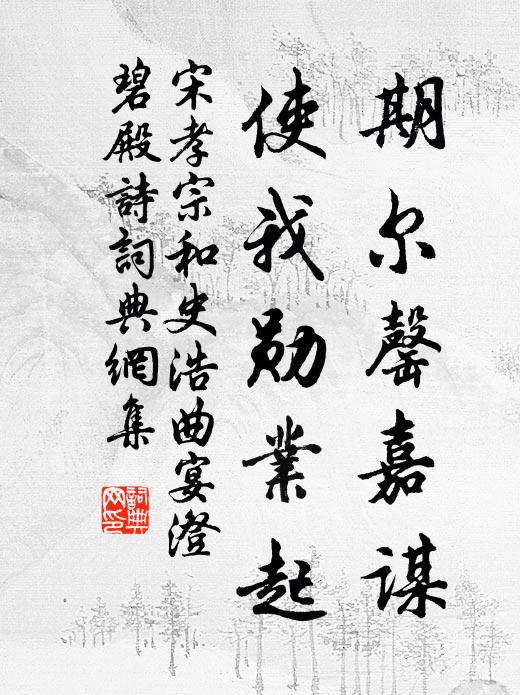 期尔罄嘉谋
使我勋業起
宋孝宗和史浩曲宴澄
碧殿詩詞典網集
詞典
网印